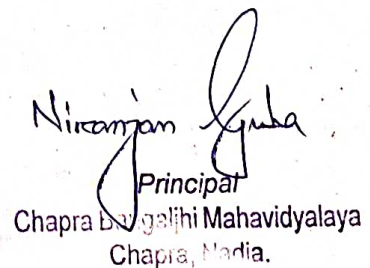 Niranjan Guha
Principal
Chapra Bangaljhi Mahavidyalaya
Chapra, Nadia.